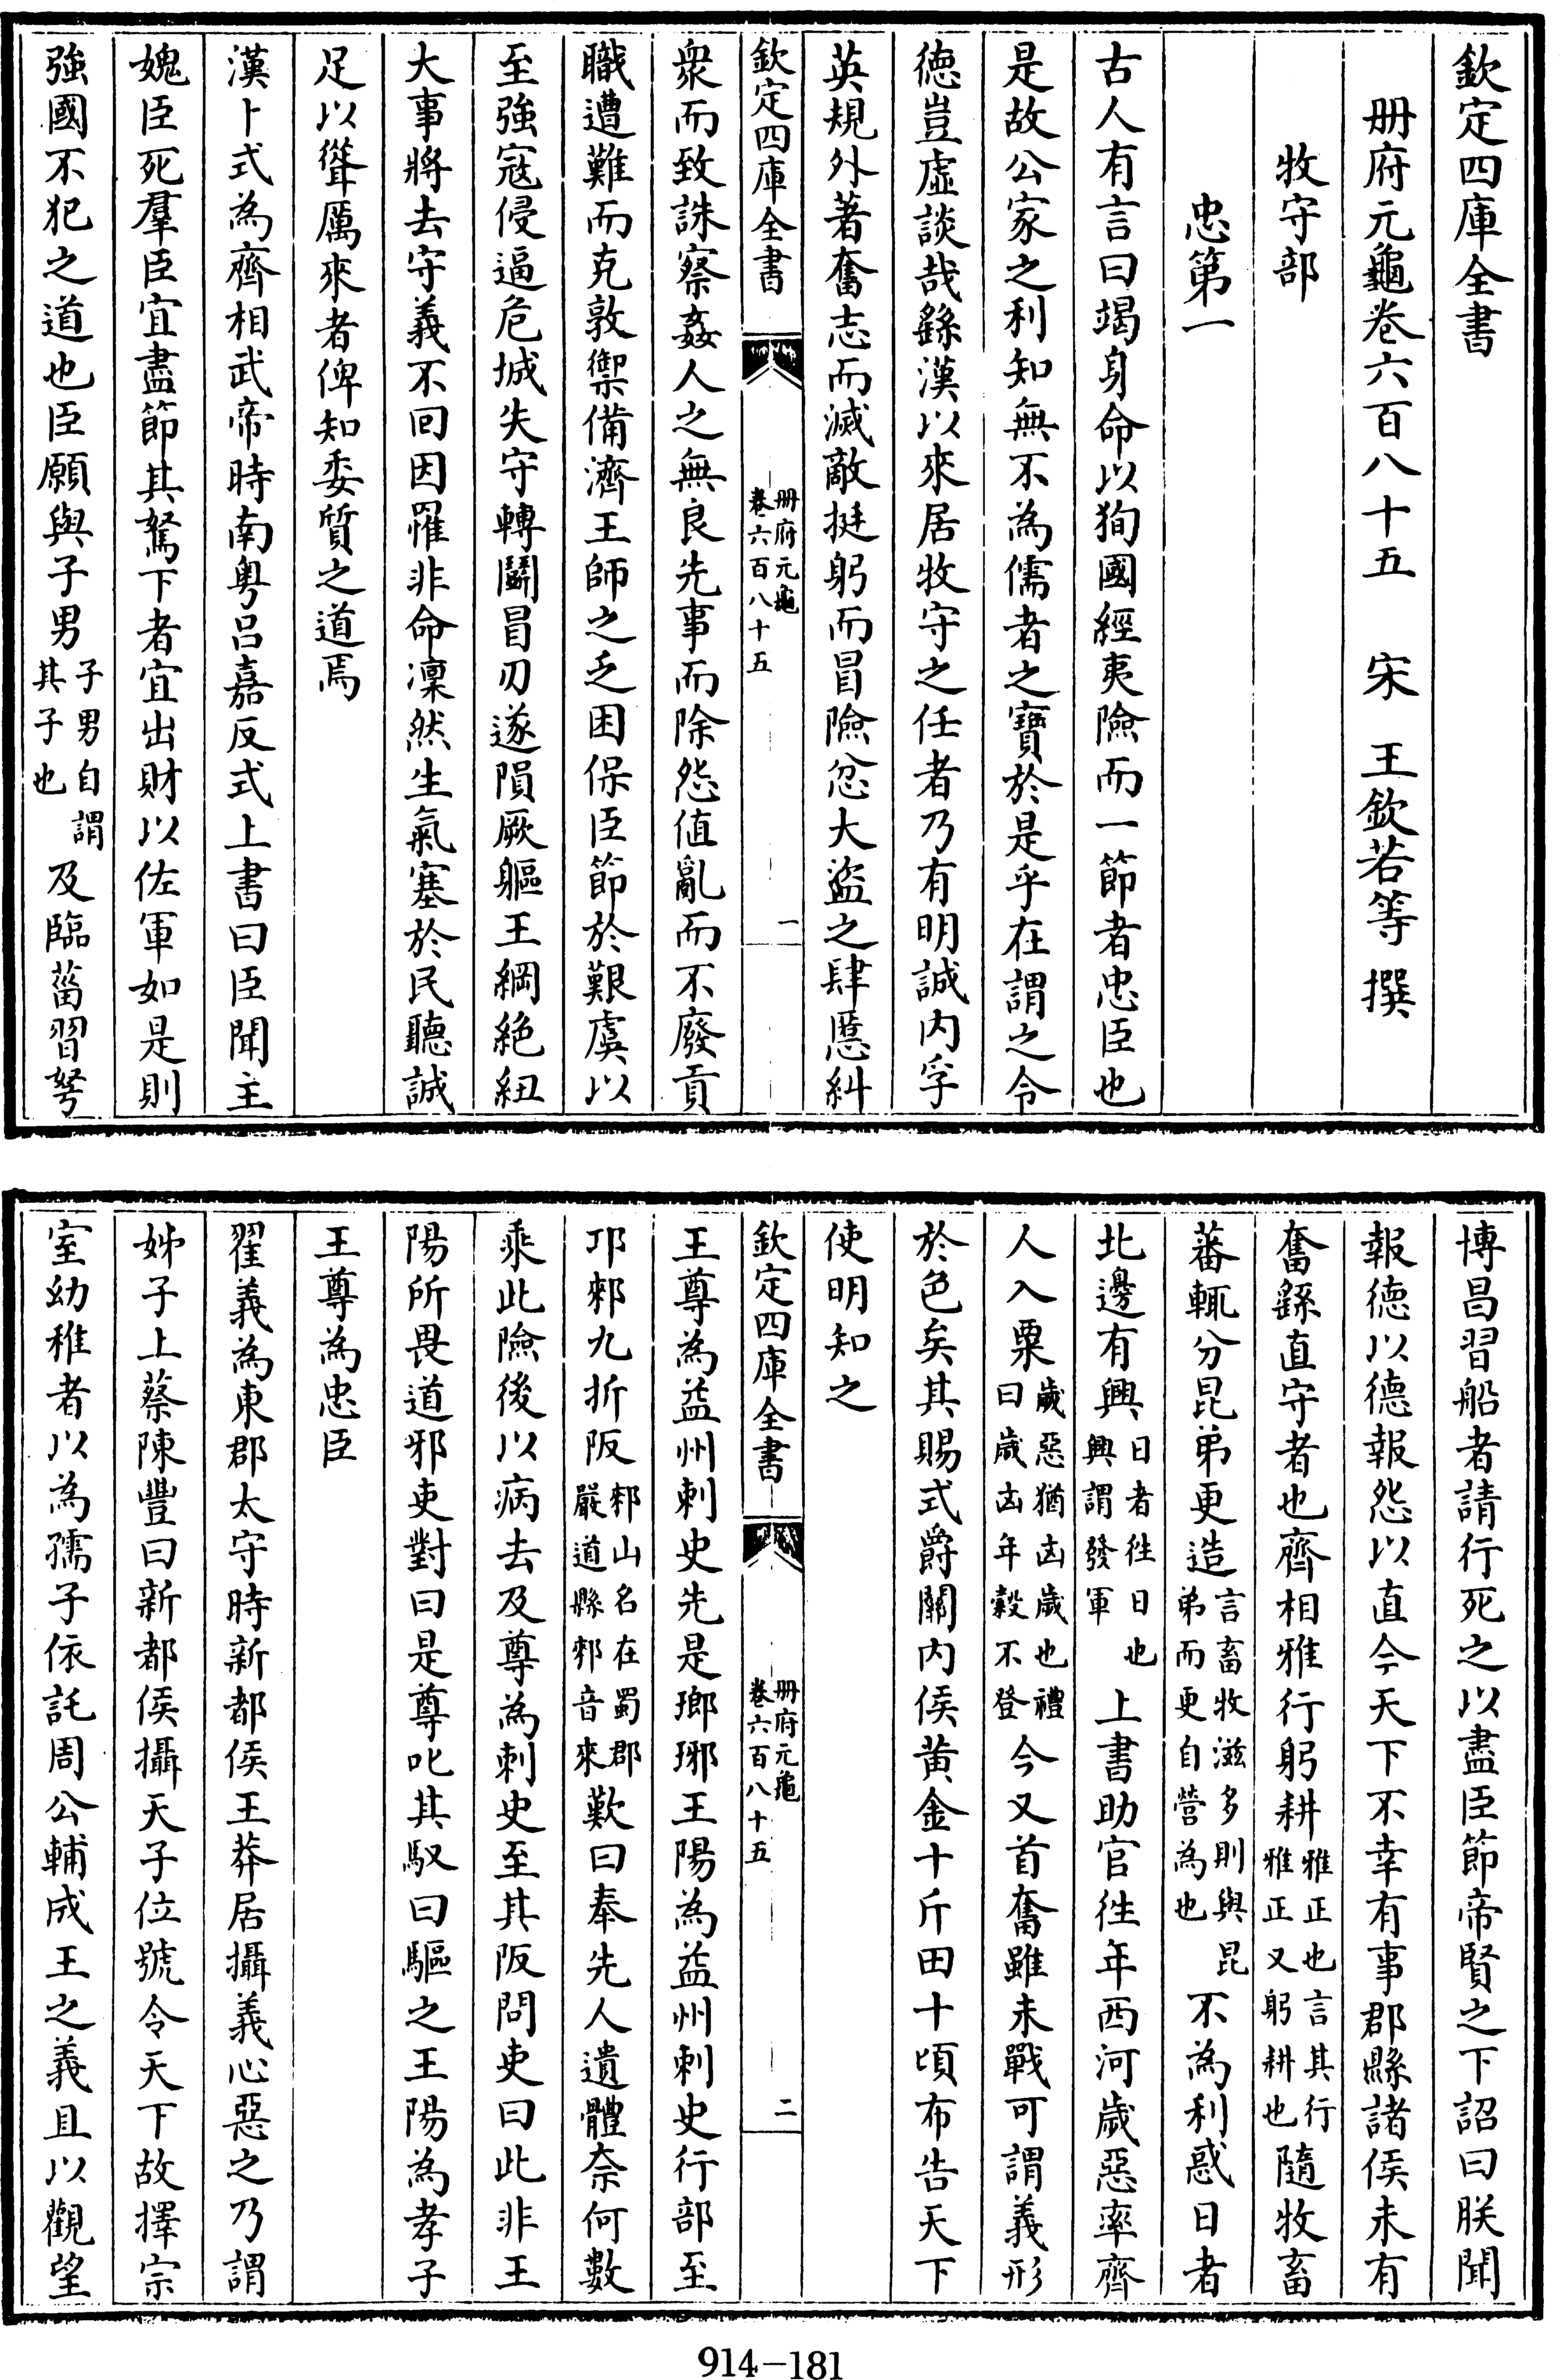 欽定四庫全書
册府元龜卷六百八十五　宋　王欽若等　撰
牧守部
忠第一
古人有言曰竭身命以狥國經夷險而一節者忠臣也
是故公家之利知無不為儒者之寶於是乎在謂之令
德豈虚談哉繇漢以來居牧守之任者乃有明誠内孚
英規外著奮志而滅敵挺躬而冒險忿大盜之肆慝糾
欽定四庫全書
册府元龜
卷六百八十五
一
衆而致誅察姦人之無良先事而除怨值亂而不廢貢
職遭難而克敦禦備濟王師之乏困保臣節於艱虞以
至強寇侵逼危城失守轉鬭冒刃遂隕厥軀王綱絶紐
大事將去守義不回因罹非命凜然生氣塞於民聽誠
足以聳厲來者俾知委質之道焉
漢卜式為齊相武帝時南粤吕嘉反式上書曰臣聞主
媿臣死羣臣宜盡節其駑下者宜出財以佐軍如是則
強國不犯之道也臣願與子男子男自謂其子也及臨菑習弩
博昌習船者請行死之以盡臣節帝賢之下詔曰朕聞
報德以德報怨以直今天下不幸有事郡縣諸侯未有
奮繇直守者也齊相雅行躬耕雅正也言其行雅正又躬耕也隨牧畜
蕃輒分昆弟更造言畜牧滋多則與昆弟而更自營為也不為利惑日者
北邊有興日者徃日也興謂發軍上書助官徃年西河歲惡率齊
人入粟歲惡猶凶歲也禮曰歲凶年穀不登今又首奮雖未戰可謂義形
於色矣其賜式爵關内侯黄金十斤田十頃布告天下
使明知之
欽定四庫全書
册府元龜
卷六百八十五
二
王尊為益州刺史先是瑯琊王陽為益州刺史行部至
邛郲九折阪郲山名在蜀郡嚴道縣郲音來歎曰奉先人遺體奈何數
乘此險後以病去及尊為刺史至其阪問吏曰此非王
陽所畏道邪吏對曰是尊叱其馭曰驅之王陽為孝子
王尊為忠臣
翟義為東郡太守時新都侯王莽居攝義心惡之乃謂
姊子上蔡陳豐曰新都侯攝天子位號令天下故擇宗
室幼稚者以為孺子依託周公輔成王之義且以觀望
914-181